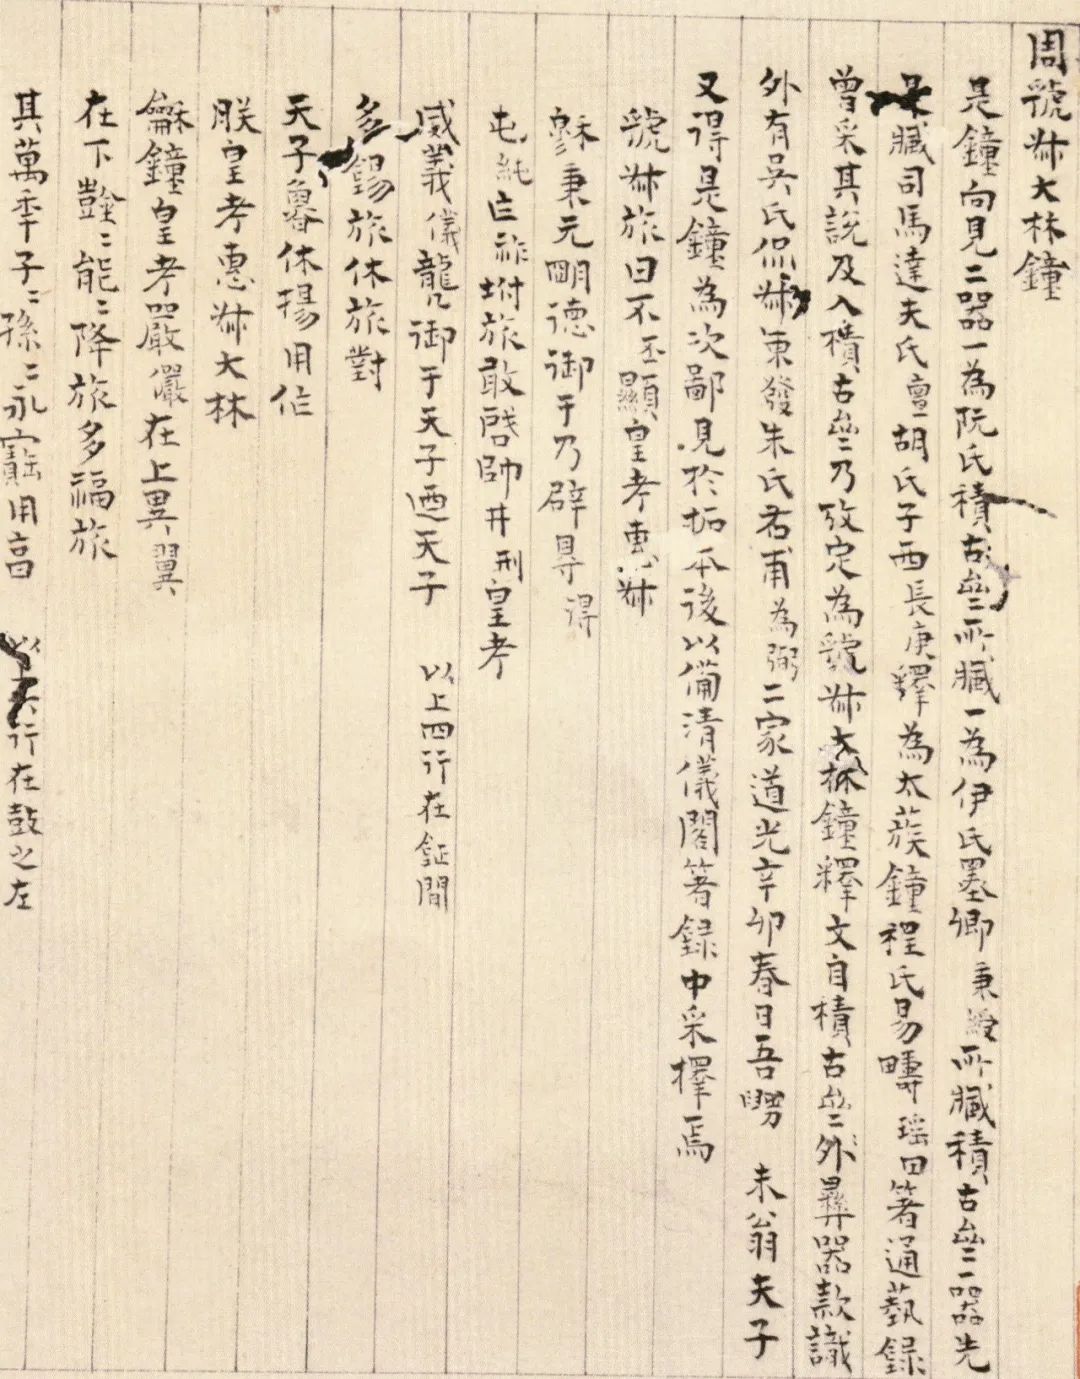 周虢叔大林鐘
是鐘向見二器一為阮氏積古齋所臧一為伊氏墨卿秉綬所臧積古齋一器先
臧司馬達夫氏亶胡氏子西長庚釋為太蔟鐘程氏易疇瑤田箸通藝录
曾采其說及入積古齋乃攷定為虢叔大林鐘釋文自積古齋外彝器款識
外有吳氏侃叔東發朱氏右甫為弼二家道光辛卯春日吾甥 未翁夫子
又得是鐘為次鄙見於拓本後以備清儀閣箸録中采擇焉
虢叔旅曰不丕顯皇考惠叔
穆秉元朙德御于乃辟㝵得
屯純亡祚坿旅敢啓帥井刑皇考
威義儀龍御于天子迺天子 以上四行在鉦間
多錫旅休旅對
天子魯休揚用作
朕皇考惠叔大林
龢鐘皇考嚴儼在上異翼
在下數﹦能﹦降旅多福旅
其萬年子﹦孫﹦永寶用亯 以 行在鼓之左